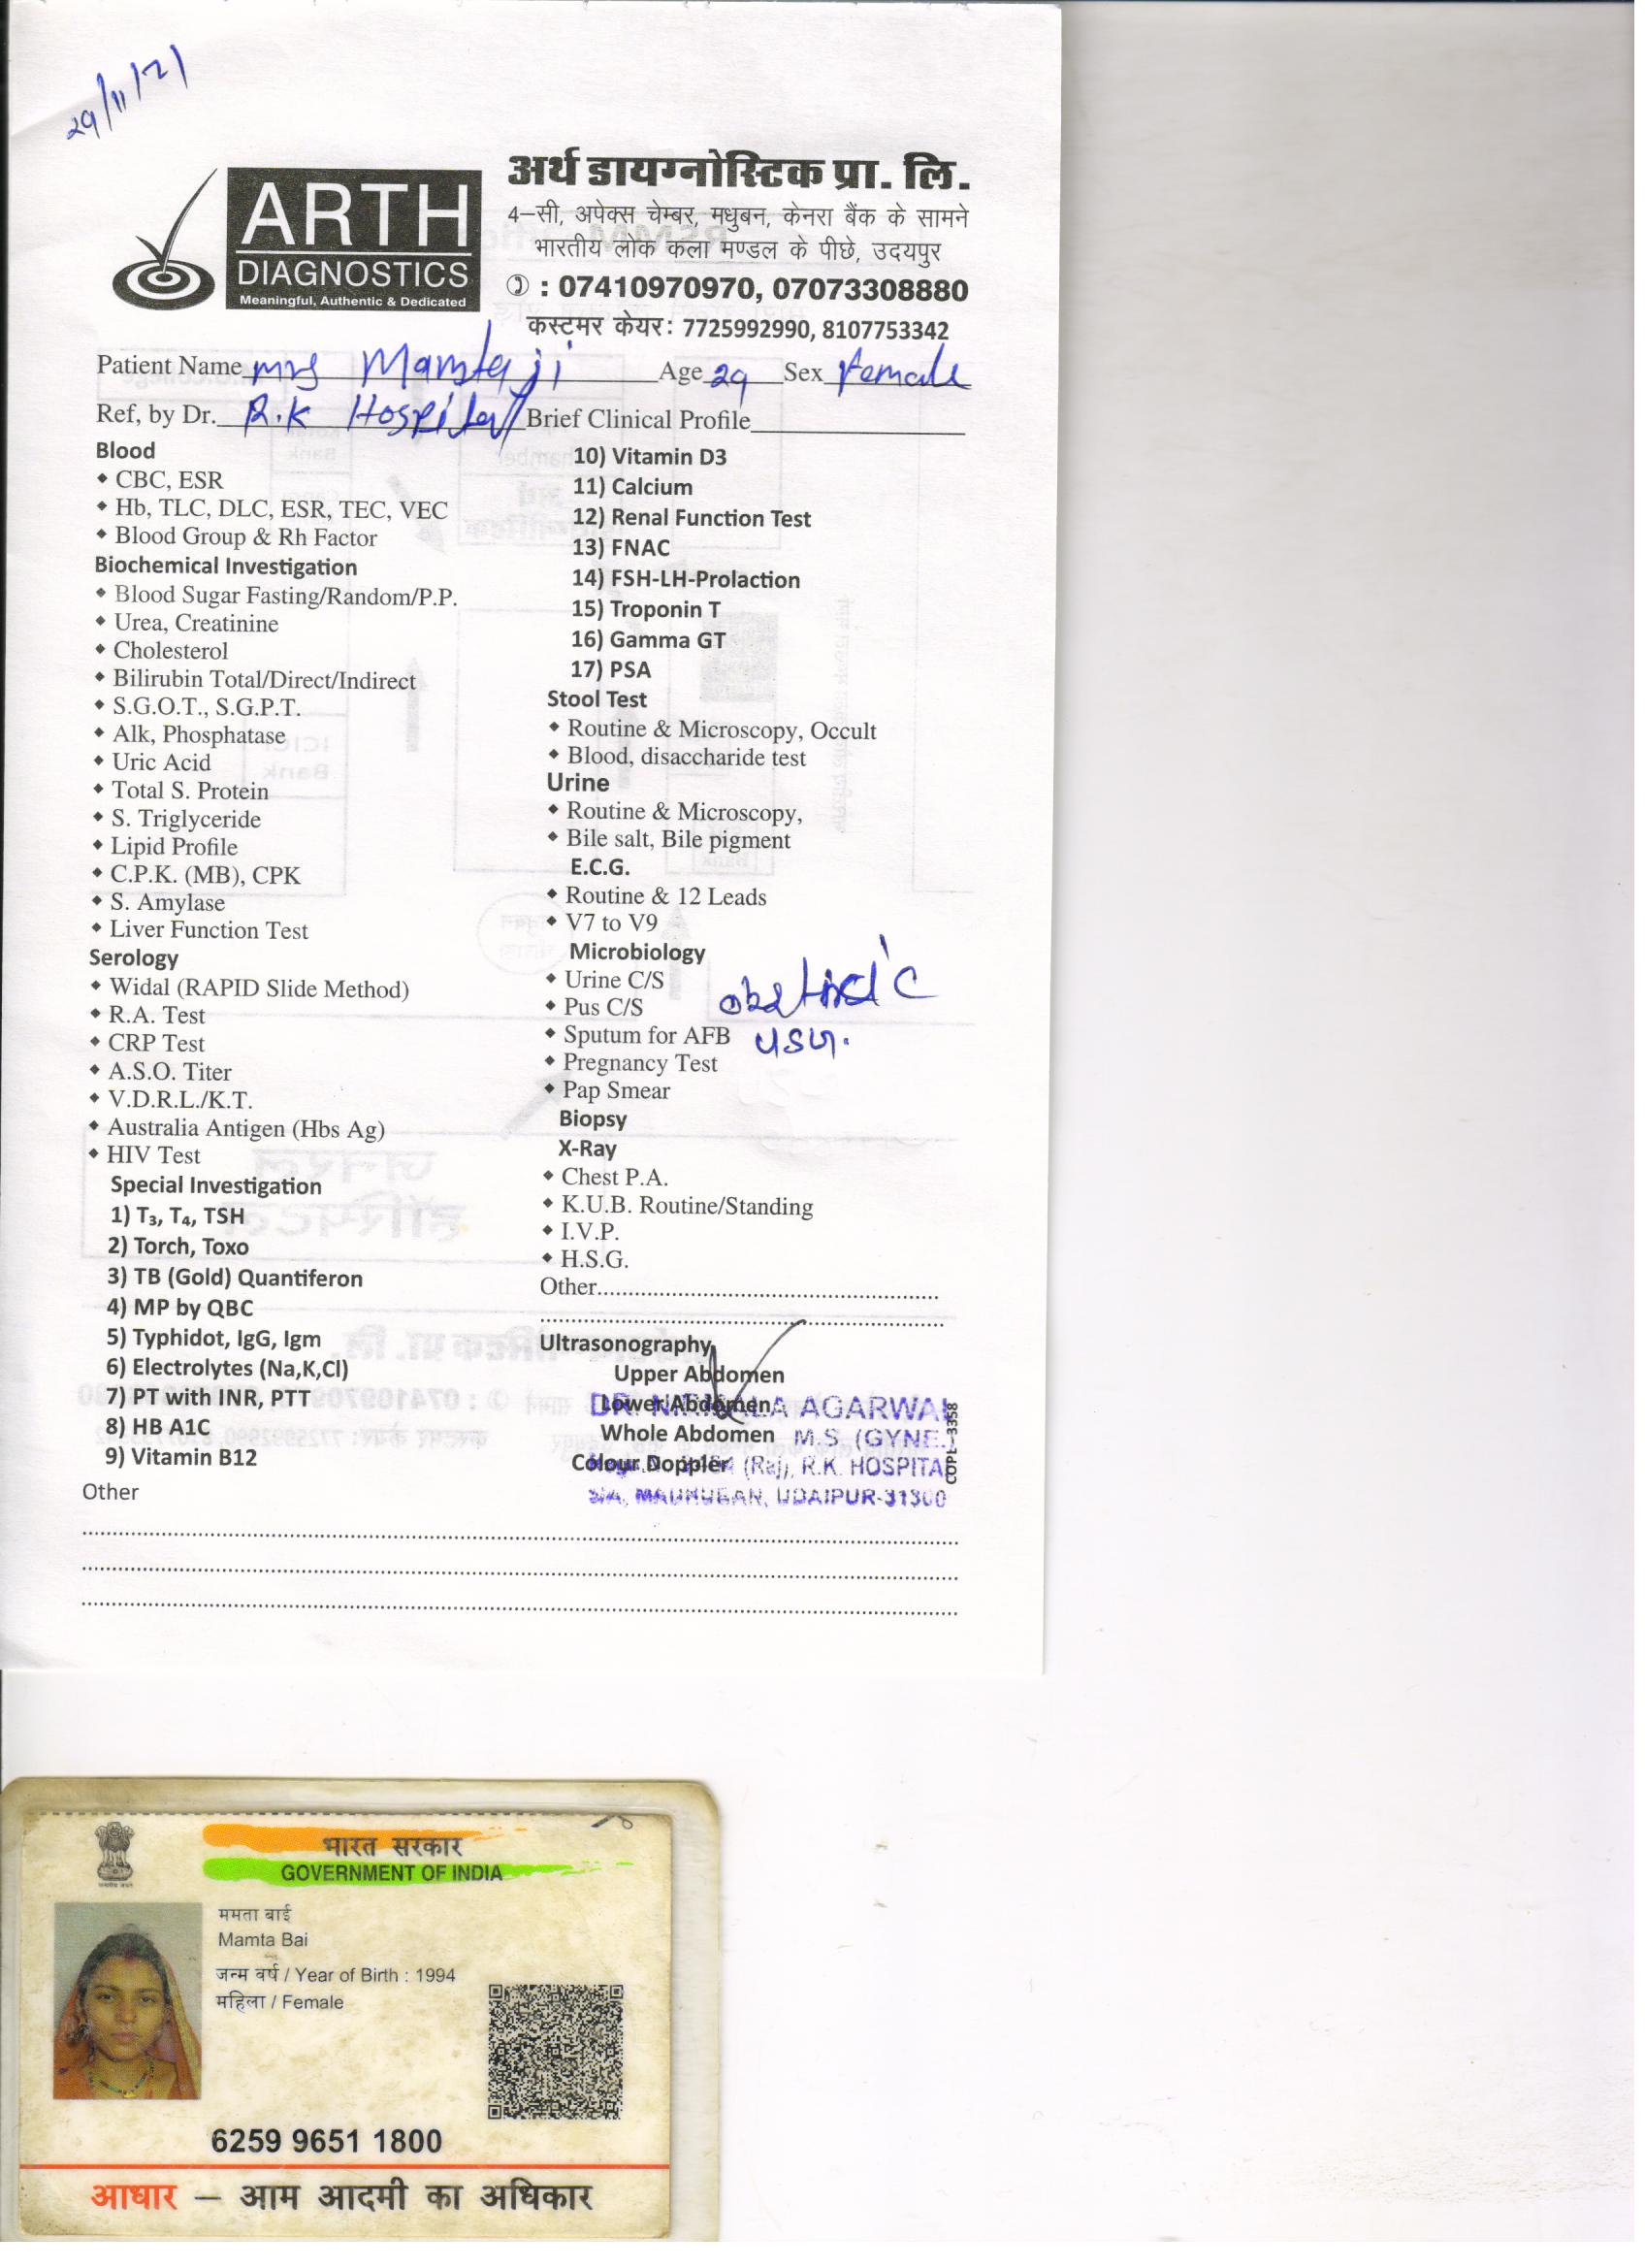 29/11/21
ARTH
DIAGNOSTICS
Meaningful, Authentic & Dedicated
अर्थ डायग्नोस्टिक प्रा. लि.
4–सी, अपेक्स चेम्बर, मधुबन, केनरा बैंक के सामने
भारतीय लोक कला मण्डल के पीछे, उदयपुर
✆ : 07410970970, 07073308880
कस्टमर केयर: 7725992990, 8107753342
Patient Name mrs Mamta ji Age 29 Sex Female
Ref, by Dr. R.K Hospital Brief Clinical Profile
Blood
• CBC, ESR
• Hb, TLC, DLC, ESR, TEC, VEC
• Blood Group & Rh Factor
Biochemical Investigation
• Blood Sugar Fasting/Random/P.P.
• Urea, Creatinine
• Cholesterol
• Bilirubin Total/Direct/Indirect
• S.G.O.T., S.G.P.T.
• Alk, Phosphatase
• Uric Acid
• Total S. Protein
• S. Triglyceride
• Lipid Profile
• C.P.K. (MB), CPK
• S. Amylase
• Liver Function Test
Serology
• Widal (RAPID Slide Method)
• R.A. Test
• CRP Test
• A.S.O. Titer
• V.D.R.L./K.T.
• Australia Antigen (Hbs Ag)
• HIV Test
Special Investigation
1) T₃, T₄, TSH
2) Torch, Toxo
3) TB (Gold) Quantiferon
4) MP by QBC
5) Typhidot, IgG, Igm
6) Electrolytes (Na,K,Cl)
7) PT with INR, PTT
8) HB A1C
9) Vitamin B12
Other
10) Vitamin D3
11) Calcium
12) Renal Function Test
13) FNAC
14) FSH-LH-Prolaction
15) Troponin T
16) Gamma GT
17) PSA
Stool Test
• Routine & Microscopy, Occult
• Blood, disaccharide test
Urine
• Routine & Microscopy,
• Bile salt, Bile pigment
E.C.G.
• Routine & 12 Leads
• V7 to V9
Microbiology
• Urine C/S
• Pus C/S
• Sputum for AFB
• Pregnancy Test
• Pap Smear
obstetric
USG.
Biopsy
X-Ray
• Chest P.A.
• K.U.B. Routine/Standing
• I.V.P.
• H.S.G.
Other
Ultrasonography
Upper Abdomen
Lower Abdomen
Whole Abdomen
Colour Doppler
DR. NIRMALA AGARWAL
M.S. (GYNE.)
(Raj), R.K. HOSPITAL
MADHUBAN, UDAIPUR-31300
CDPL-3358
भारत सरकार
GOVERNMENT OF INDIA
ममता बाई
Mamta Bai
जन्म वर्ष / Year of Birth : 1994
महिला / Female
6259 9651 1800
आधार – आम आदमी का अधिकार